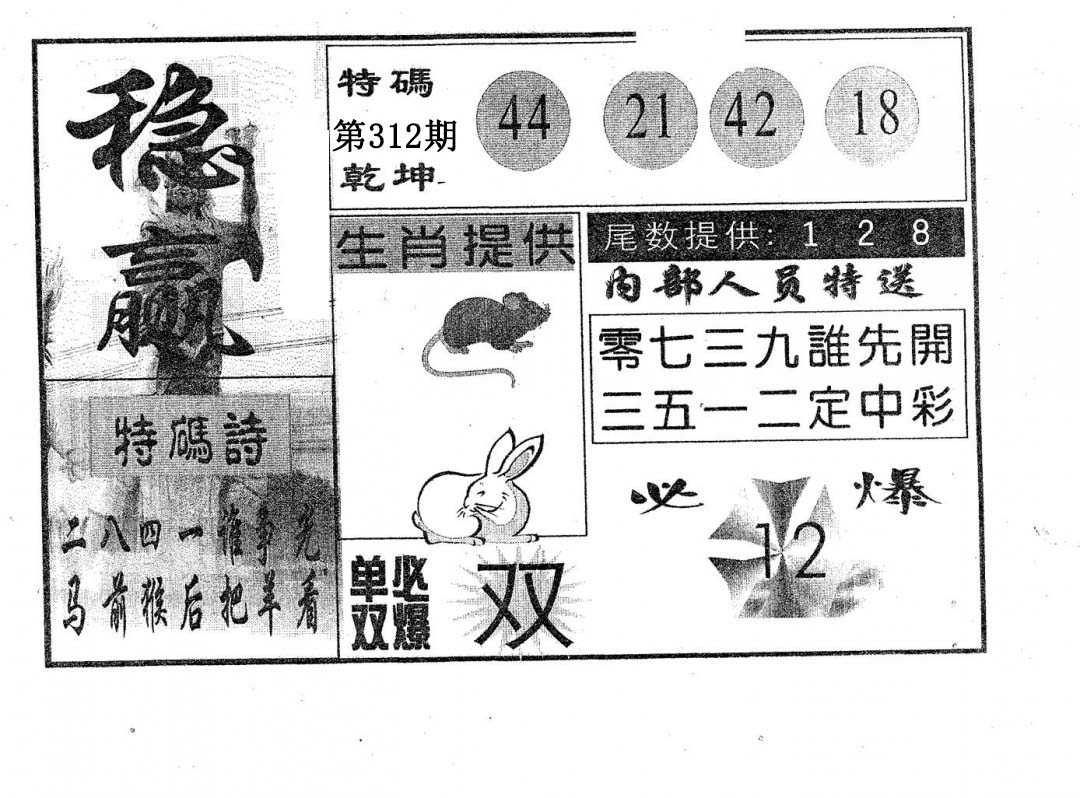 稳赢
特碼
第312期
乾坤
44 21 42 18
生肖提供
尾数提供: 1 2 8
内部人员特送
零七三九誰先開
三五一二定中彩
特碼詩
二八四一谁争先
马前猴后把羊看
单必
双爆
双
必爆
12